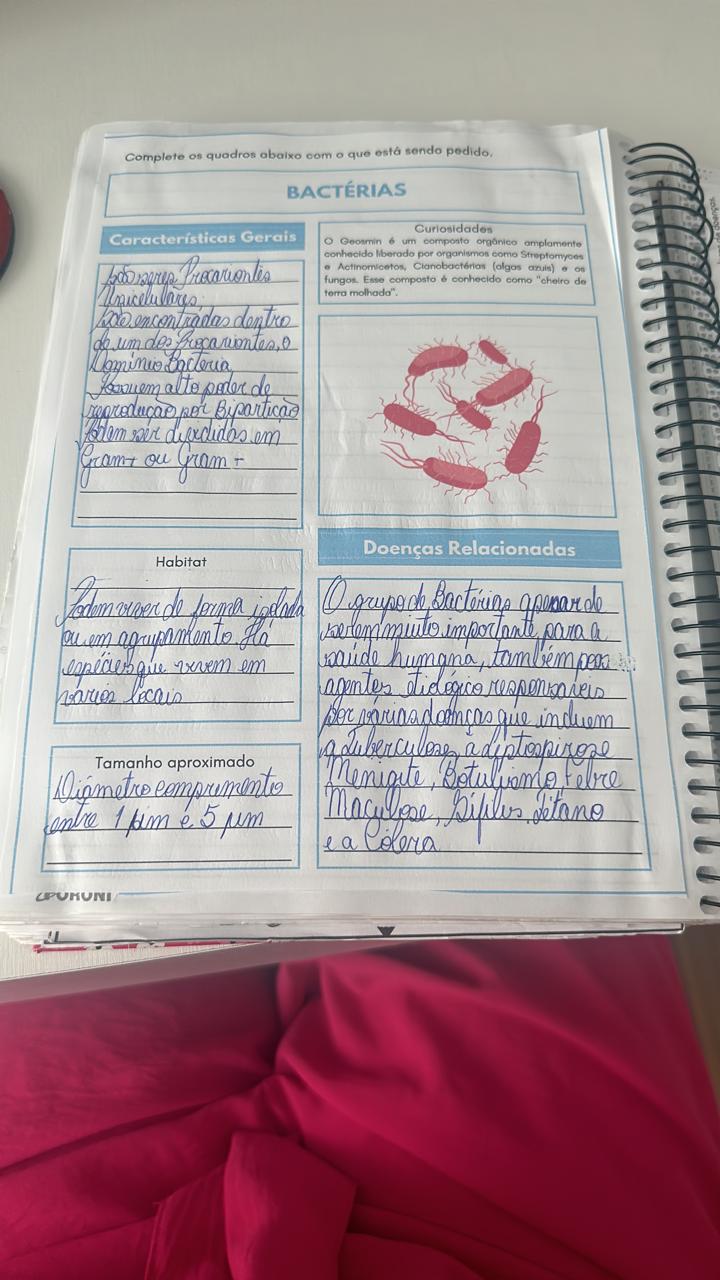 Complete os quadros abaixo com o que está sendo pedido.
BACTÉRIAS
Características Gerais
São seres Procariontes
Unicelulares.
São encontradas dentro
de um dos Procariontes, o
Domínio Bacteria
Possuem alto poder de
reprodução por Bipartição
Podem ser divididas em
Gram+ ou Gram -
Curiosidades
O Geosmin é um composto orgânico amplamente
conhecido liberado por organismos como Streptomyces
e Actinomicetos, Cianobactérias (algas azuis) e os
fungos. Esse composto é conhecido como "cheiro de
terra molhada".
Habitat
Podem viver de forma isolada
ou em agrupamento. Há
espécies que vivem em
vários locais
Tamanho aproximado
Diâmetro comprimento
entre 1 µm e 5 µm
Doenças Relacionadas
O grupo de Bactérias apesar de
serem muito importante para a
saúde humana, também
agentes responsáveis
por várias doenças que incluem
a tuberculose, a leptospirose
Menigite, Botulismo, Febre
Maculose, Sífilus, Tétano
e a Cólera